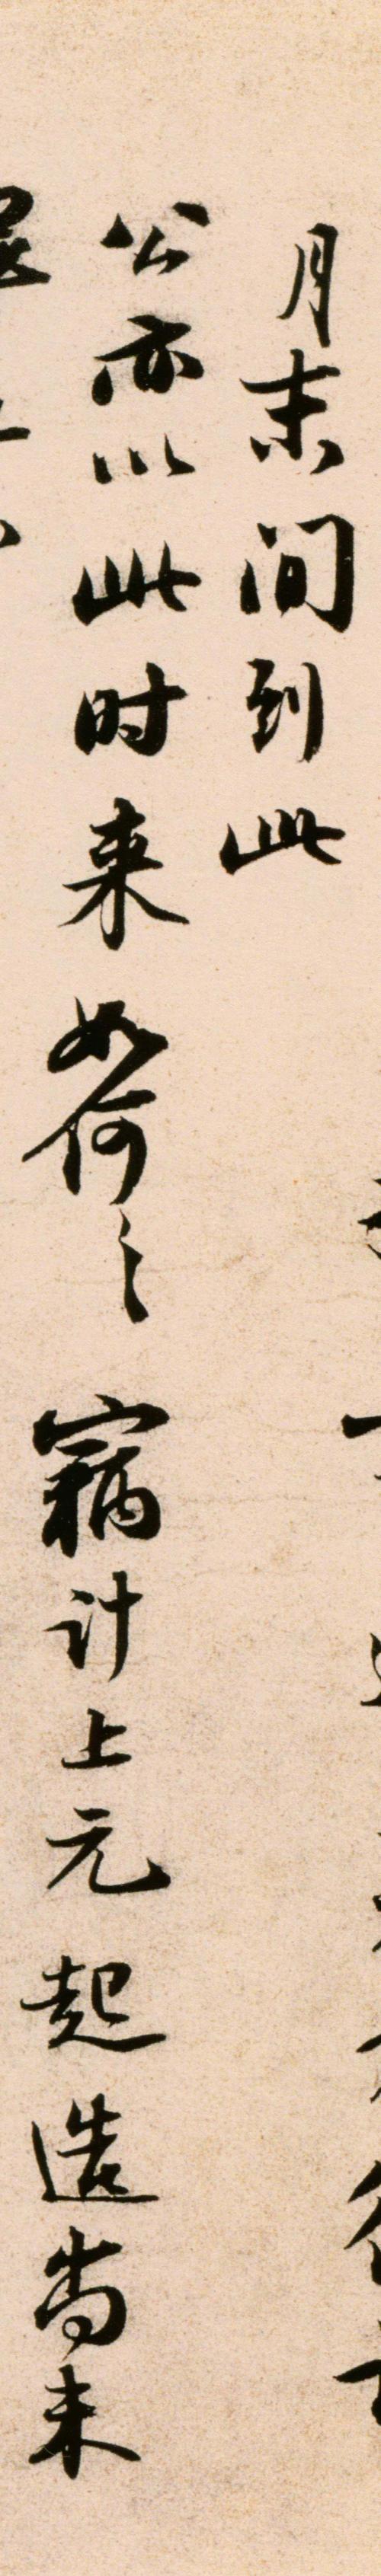 月末间到此
公亦以此时来如何〻窃计上元起造尚未